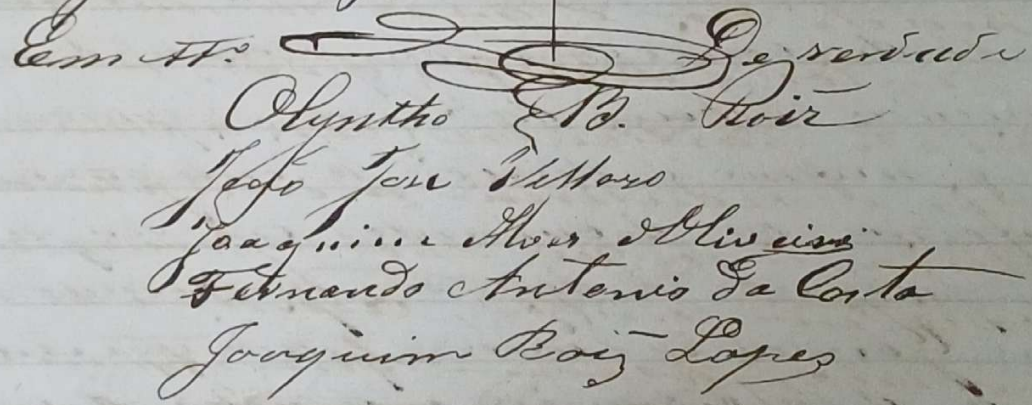 Em tt.º De verdade
Olyntho B. Roiz
João Jose Vellozo
Joaquim Alves d'Oliveira
Fernando Antonio da Costa
Joaquim Roiz Lopes